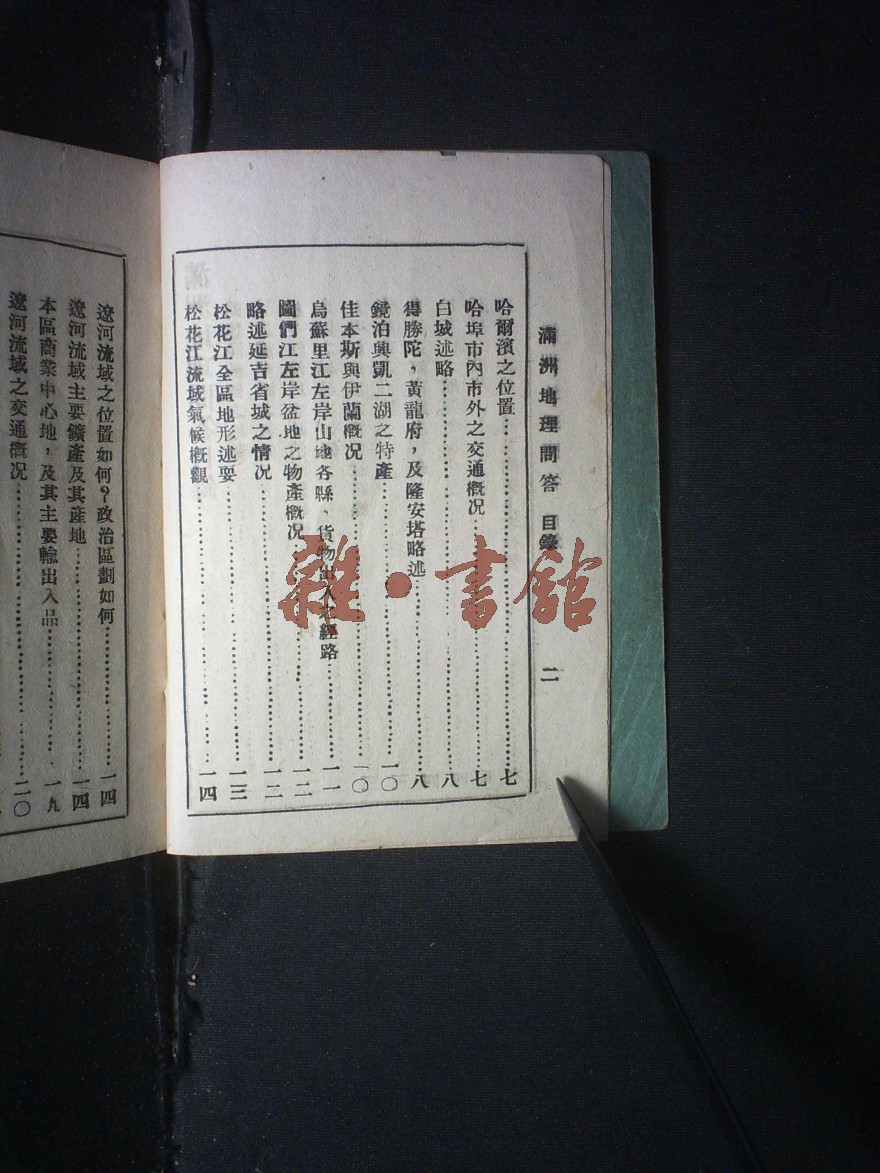 滿洲地理問答 目錄 二
哈爾濱之位置……………………七
哈埠市內市外之交通概况……………………七
白城述略……………………八
得勝陀，黃龍府，及隆安塔略述……………………八
鏡泊興凱二湖之特產……………………一〇
佳本斯與伊蘭概况……………………一〇
烏蘇里江左岸山地各縣、貨物出入之經路……………………一一
圖們江左岸盆地之物產概况……………………一二
略述延吉省城之情况……………………一二
松花江全區地形述要……………………一三
松花江流域氣候概觀……………………一四
遼河流域之位置如何？政治區劃如何……………………一四
遼河流域主要鑛產及其產地……………………一四
本區商業中心地，及其主要輸出入品……………………一九
遼河流域之交通概况……………………二〇
雜·書館